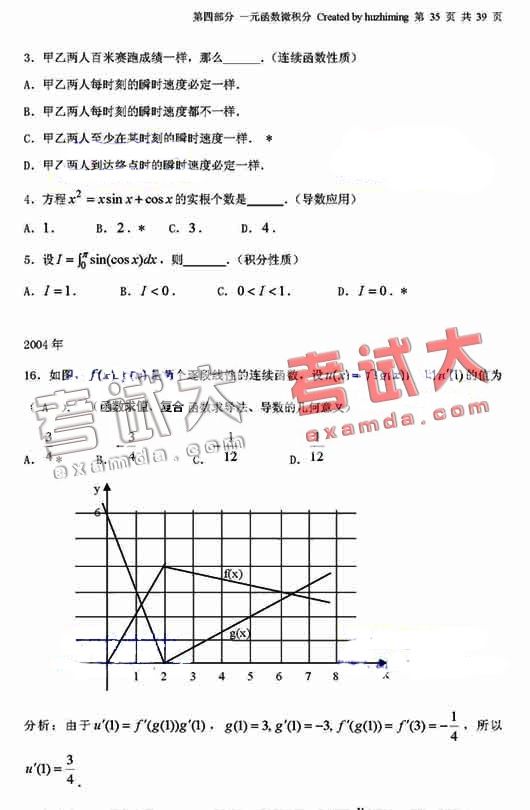 第四部分 一元函数微积分 Created by huzhiming 第 35 页 共 39 页
3．甲乙两人百米赛跑成绩一样，那么______．（连续函数性质）
A．甲乙两人每时刻的瞬时速度必定一样．
B．甲乙两人每时刻的瞬时速度都不一样．
C．甲乙两人至少在某时刻的瞬时速度一样． *
D．甲乙两人到达终点时的瞬时速度必定一样．
4．方程 x² = x sin x + cos x 的实根个数是______．（导数应用）
A．1． B．2．* C．3． D．4．
5．设 I = ∫₀^π sin(cos x)dx，则______．（积分性质）
A．I = 1． B．I < 0． C．0 < I < 1． D．I = 0．*
2004 年
16．如图，f(x), g(x) 是两个逐段线性的连续函数，设 u(x) = f(g(x))，则 u′(1) 的值为
（ A ）．（函数求值、复合函数求导法、导数的几何意义）
A． 3/4 * B． -3/4 C． -1/12 D． 1/12
考试大
examda.com
考试大
examda.com
y
6
f(x)
g(x)
1 2 3 4 5 6 7 8 x
分析：由于 u′(1) = f′(g(1))g′(1)，g(1) = 3, g′(1) = −3, f′(g(1)) = f′(3) = −1/4，所以
u′(1) = 3/4．